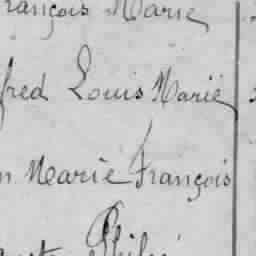 rançois Marie
fred Louis Marie
n Marie François